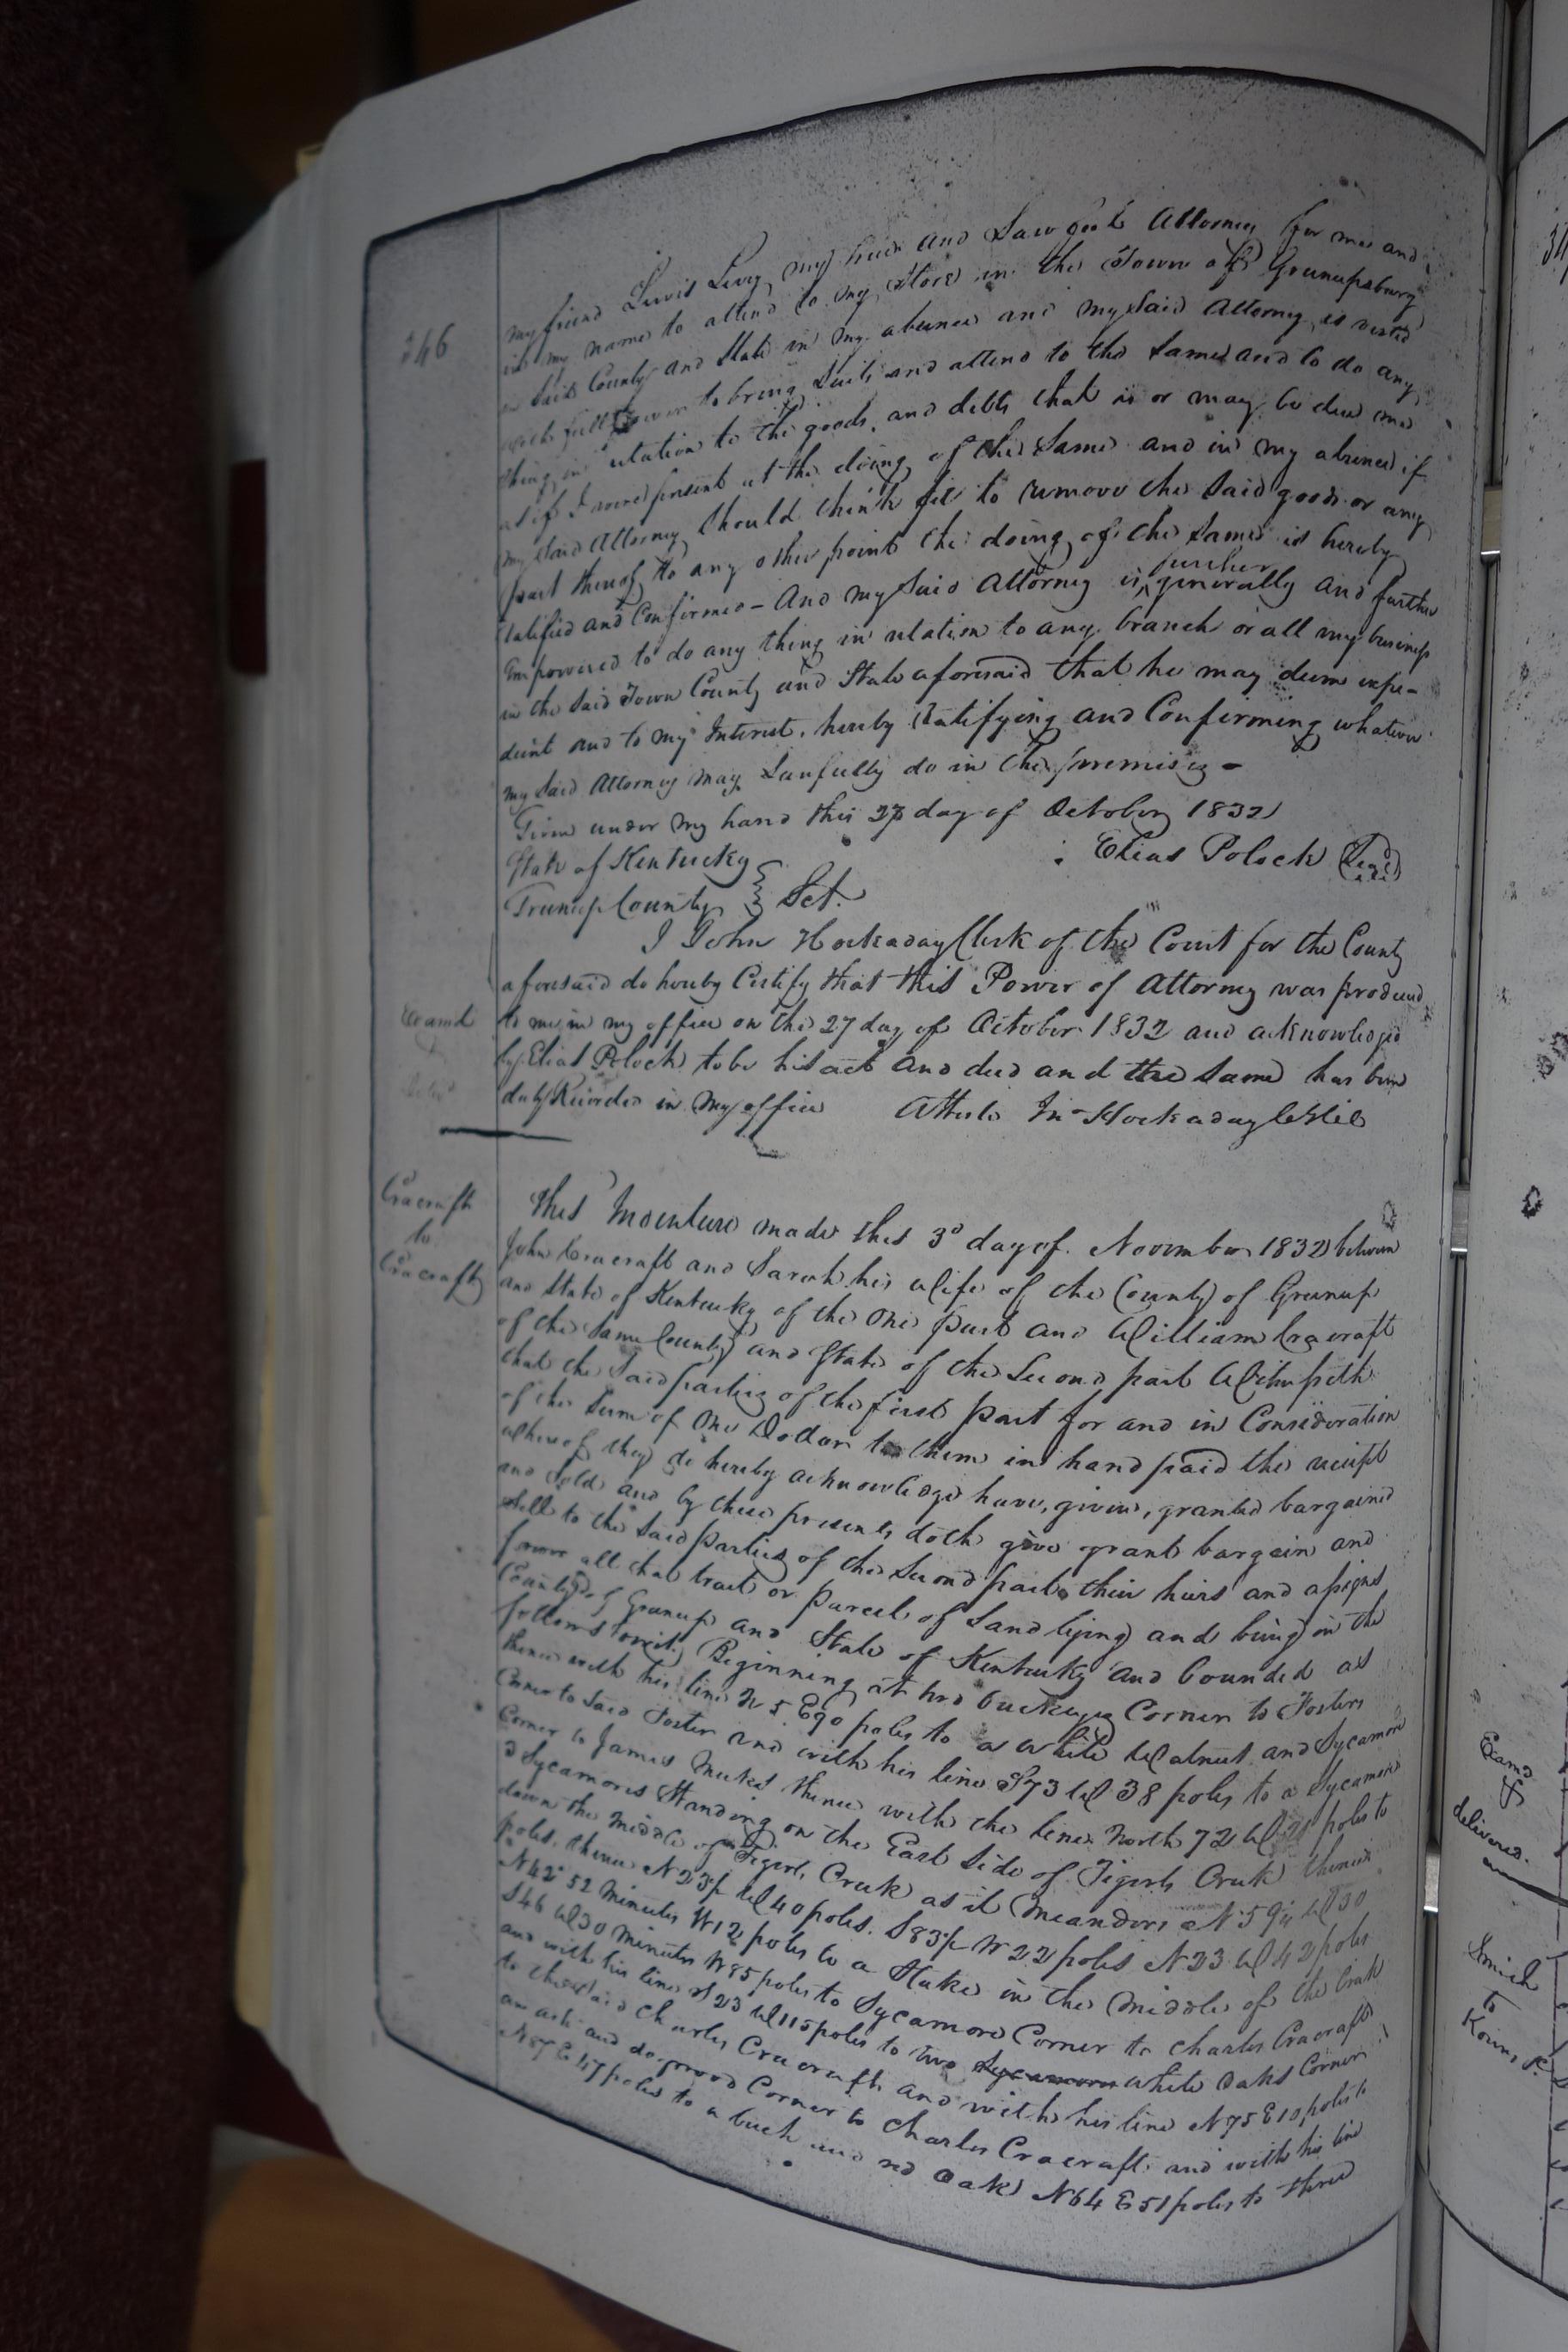 346
my friend Lewis Levy my true and Lawful Attorney for me and
in my name to attend to my Store in the Town of Greenupsburg
in Said County and State in my absence and my Said Attorney is vested
with full power to bring Suits and attend to the Same and to do any
thing in relation to the goods, and debts that is or may be due me
as if I were present at the doing of the Same and in my absence if
my Said Attorney Should think fit to remove the Said goods or any
part thereof to any other point the doing of the Same is hereby
Ratified and Confirmed – And my Said Attorney is further generally and further
Empowered to do any thing in relation to any branch or all my business
in the Said Town County and State aforesaid that he may deem expe-
dient and to my Interest, hereby Ratifying and Confirming whatever
my Said Attorney may Lawfully do in the premises –
Given under my hand this 27 day of October 1832
Elias Polock (Seal)
State of Kentucky
Greenup County } Sct.
I John Hockaday Clerk of the Court for the County
aforesaid do hereby Certify that this Power of Attorney was produced
Examd
to me in my office on the 27 day of October 1832 and acknowledged
by Elias Polock to be his act and deed and the Same has been
duly Recorded in my office Atteste Jn Hockaday Clk
Cracraft
to
Cracraft
This Indenture made this 3d day of November 1832 between
John Cracraft and Sarah his Wife of the County of Greenup
and State of Kentucky of the one part and William Cracraft
of the Same County and State of the Second part Witnesseth
that the Said parties of the first part for and in Consideration
of the Sum of One Dollar to them in hand paid the receipt
whereof they do hereby acknowledge have, given, granted bargained
and Sold and by these presents doth give grant bargain and
Sell to the Said parties of the Second part, their heirs and assigns
forever all that tract or parcel of Land lying and being in the
County of Greenup and State of Kentucky and bounded as
follows towit, Beginning at two buckeyes Corner to Fosters
thence with his line N 5 E 90 poles to a white Walnut and Sycamore
Corner to Said Foster and with his line S 73 W 38 poles to a Sycamore
Corner to James Meeks thence with the line North 72 W poles to
2 Sycamores Standing on the East Side of Tigerts Creek thence
down the middle of Tigerts Creek as it meanders N 59¼ W 30
poles, thence N 23½ W 40 poles. S 83½ W 22 poles N 23 W 42 poles
N 42° 52 Minutes W 12 poles to a Stake in the Middle of the Creek
S 46 W 30 Minutes W 85 poles to Sycamore Corner to Charles Cracraft
and with his line S 23 W 115 poles to two Sycamores white Oaks Corner
to the Said Charles Cracraft and with his line N 75 E 10 poles to
an ash and dogwood Corner to Charles Cracraft and with his line
N 87 E 47 poles to a beech and red Oak N 64 E 51 poles to three
Examd
&
delivered
Smith
to